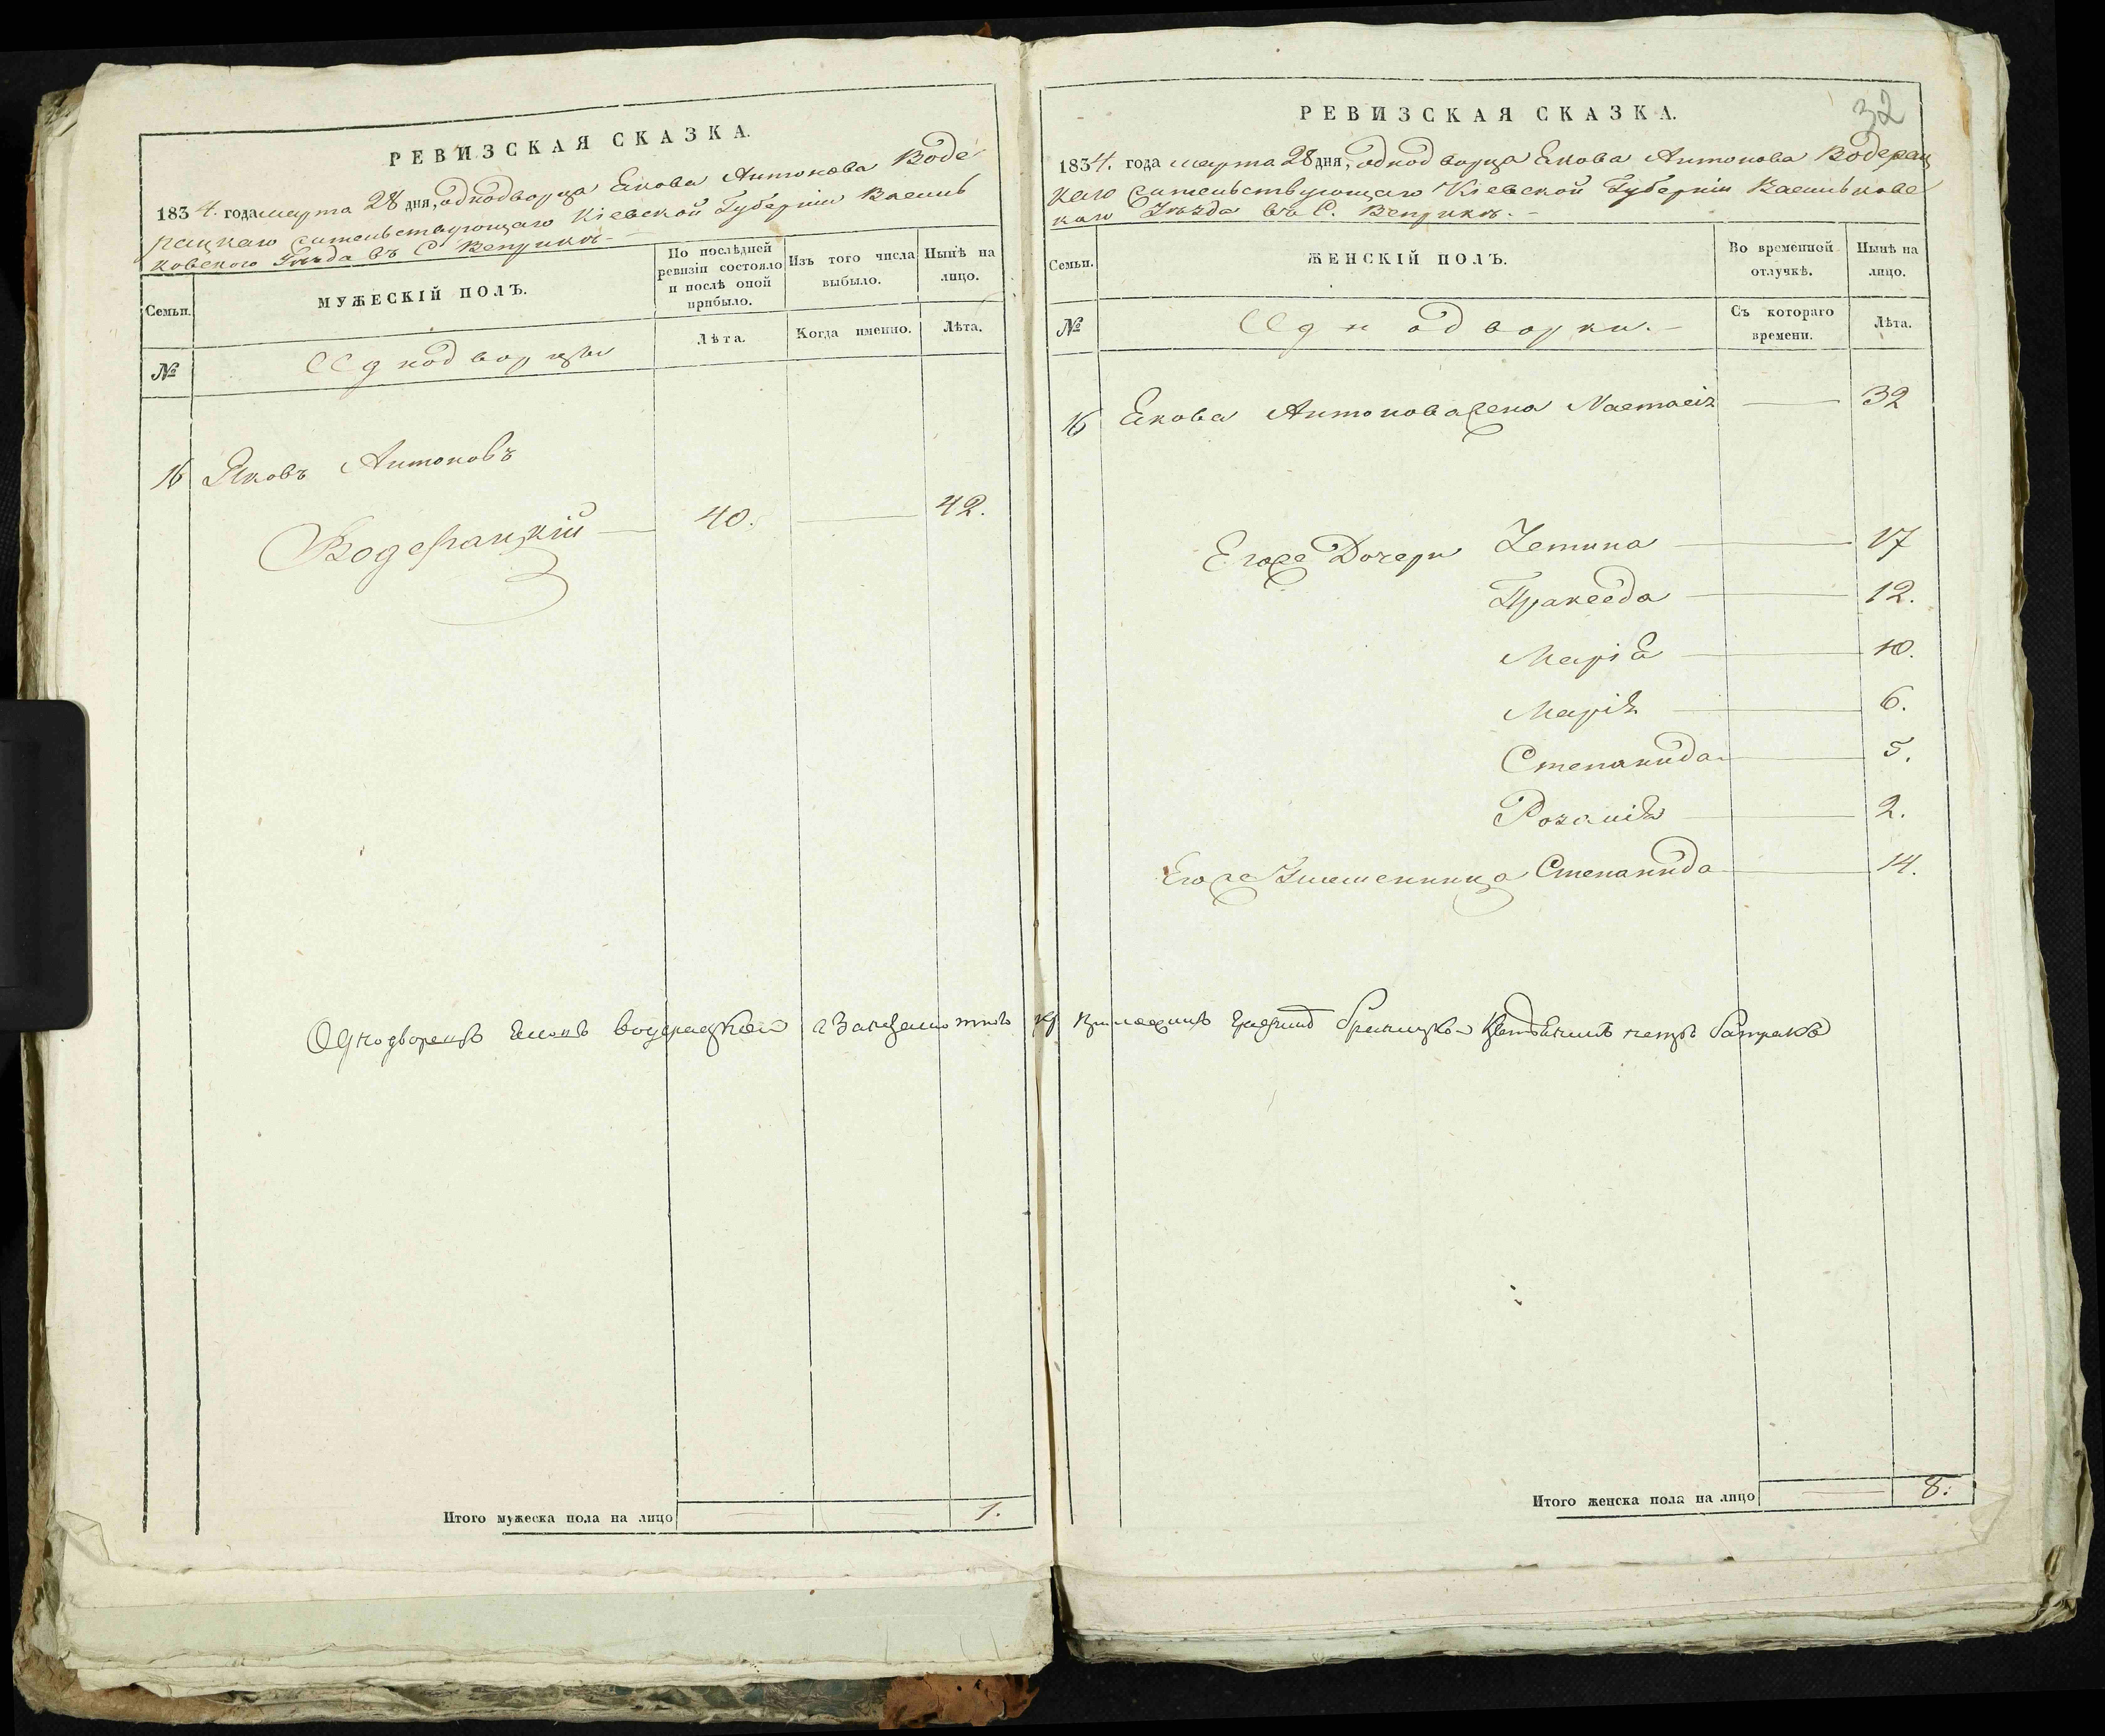 РЕВИЗСКАЯ СКАЗКА.
1834. года марта 28 дня, однодворца Якова Антонова Воде
рацкаго жительствующаго Кіевской Губерніи Василь
ковского Уѣзда въ С. Веприкѣ.
Семьи.
МУЖЕСКІЙ ПОЛЪ.
По послѣдней ревизіи состояло и послѣ оной прибыло.
Изъ того числа выбыло.
Нынѣ на лицо.
№
Однодворцы
Лѣта.
Когда именно.
Лѣта.
16 Яковъ Антоновъ
Водерацкій — 40. — 42.
Однодворецъ Яковъ Водерацкой а за него
Итого мужеска пола на лицо — — 1.
32
РЕВИЗСКАЯ СКАЗКА.
1834. года марта 28 дня, однодворца Якова Антонова Водерац
каго жительствующаго Кіевской Губерніи Васильковс
каго Уѣзда въ С. Веприкѣ. -
Семьи.
ЖЕНСКІЙ ПОЛЪ.
Во временной отлучкѣ.
Нынѣ на лицо.
№
Однодворки. -
Съ котораго времени.
Лѣта.
16 Якова Антонова жена Настасія — 32
Его же Дочери Устина — 17
Пракседа — 12.
Марія — 10.
Марія — 6.
Степанида — 5.
Розалія — 2.
Его же Племенница Степанида — 14.
Итого женска пола на лицо — 8.